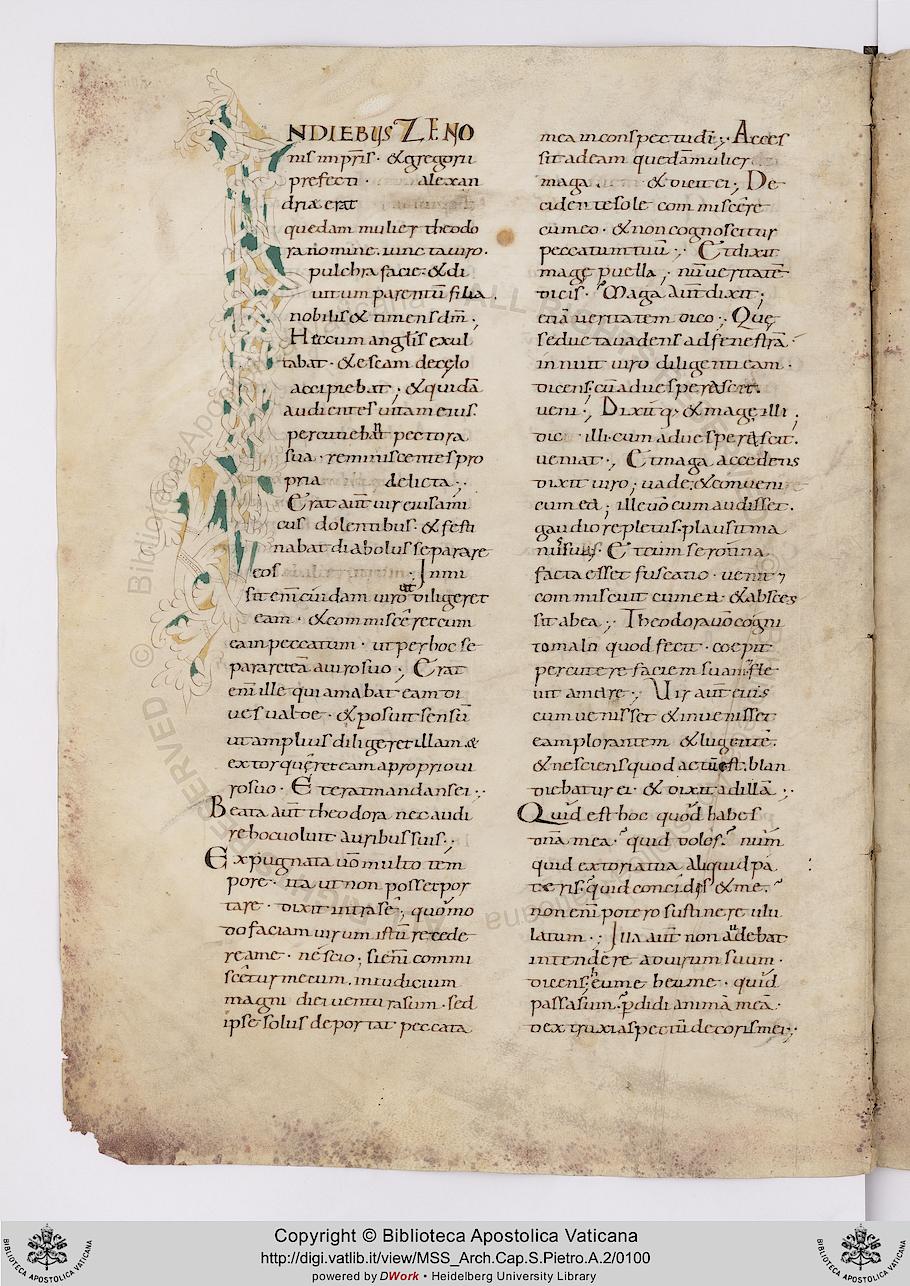 NDIEBUS ZENO
nis impris · & gregorii
prefecti · alexan
driae erat
quedam mulier theodo
ra nomine. iuncta uiro ·
pulchra facie · & di
uitum parentū filia ·
nobilis & timens dm̄ ;
Hęc cum anglis exul
tabat · & escam de cęlo
accipiebat ; & quidā
audientes uitam eius ·
percutiebant pectora
sua · reminiscentes pro
pria delicta ;
Erat aut̄ uir eius ami
cus dolentibus · & festi
nabat diabolus separare
eos · Inmi
sit eni cuidam uiro ut diligeret
eam · & commiscēret cum
eam peccatum · ut per hoc se
pararet eā a uiro suo ; Erat
eni ille qui amabat eam di
ues ualde · & posuit sensū
ut amplius diligeret illam · &
extorquęret eam a proprio ui
ro suo · Et erat mandans ei ;
Beata aut̄ theodora nec audi
re hoc uoluit auribus suis ;
Expugnata uō multo tem
pore · ita ut non posset por
tare · dixit intra sē ; quomo
do faciam uirum istū recede
re a me · nescio ; si eni commi
scētur mecum . in iudicium
magni diei uentura sum · sed
ipse solus deportat peccata
mea in conspectu dī ; Acces
sit ad eam quedā mulier
maga & dicit ei ; De
cidente sole commiscēre
cum eo · & non cognoscitur
peccatum tuū ; Et dixit
magę puella ; nū ueritatē
dicis · Maga aut̄ dixit ;
etiā ueritatem dico ; Quę
seducta uadens ad fenestrā
innuit uiro diligenti eam ·
dicens ; cū aduesperascit ·
ueni ; Dixitq · & magę illi ;
dic illi · cum aduesperascit ·
ueniat ; Et maga accedens
dixit uiro ; uade · & conueni
cum ea ; ille uō cum audisset ·
gaudio repletus · plausit ma
nus suas · Et cum serotina
facta esset fuscatio · uenit
commiscuit cum ea · & absces
sit ab ea ; Theodora uō cogni
to malo quod fecit · coepit
percutere faciem suam · & fle
uit amare ; Uir aut̄ euis
cum uenisset & inuenisset
eam plorantem & lugentē ·
& nesciens quod actū est · blan
diebatur ei · & dixit ad illā ;
Quid est hoc quod habes
dn̄a mea · quid doles · num
quid extoria tua aliquid pa
teris · quid concidis & me ·
non eni potero sustinere ulu
latum ; Illa aut̄ non audebat
intendere ad uirum suum ·
dicens ; heu me heu me · quid
passa sum · pdidi animā meā ·
dextruxi aspectū decoris mei ;
Copyright © Biblioteca Apostolica Vaticana
http://digi.vatlib.it/view/MSS_Arch.Cap.S.Pietro.A.2/0100
powered by DWork • Heidelberg University Library